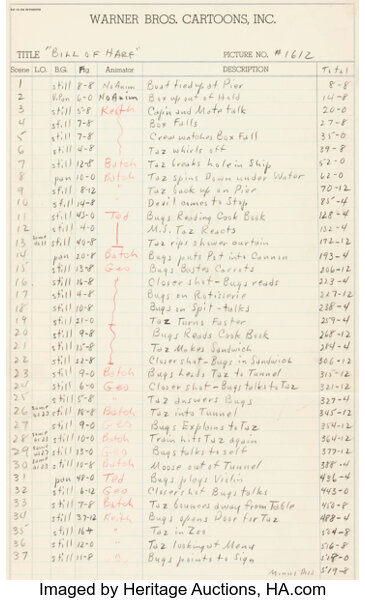 WARNER BROS. CARTOONS, INC.
TITLE "BILL OF HARE" PICTURE NO. #1612
Scene L.O. B.G. Ftg Animator DESCRIPTION Total
1 still 8-8 No Anim Boat tied up at Pier 8-8
2 6-0 No Anim Box up out of Hold 14-8
3 still 5-8 Keith Cap'n and Mate talk 20-0
4 still 7-8 Box Falls 27-8
5 still 7-8 Crew watches Box Fall 35-0
6 still 4-8 Taz whirls off 39-8
7 still 12-8 Batch Taz breaks hole in Ship 52-0
8 pan 10-0 Batch Taz Spins Down under Water 62-0
9 still 8-12 " Taz back up on Pier 70-12
10 still 14-8 " Devil comes to Stop 85-4
11 still 43-0 Ted Bugs Reading Cook Book 128-4
12 still 4-0 M.S. Taz Reacts 132-4
13 still 40-8 Taz rips shower curtain 172-12
14 pan 20-8 Batch Bugs puts Pot into Cannon 193-4
15 still 13-8 Geo Bugs Bastes Carrots 206-12
16 still 16-8 Closer shot - Bugs reads 223-4
17 still 4-8 Bugs on Rotisserie 227-12
18 still 10-8 Bugs on Spit - talks 238-4
19 still 21-0 Taz Turns Faster 259-4
20 still 9-8 Bugs Reads Cook Book 268-12
21 still 15-8 Taz Makes Sandwich 284-4
22 still 22-8 Closer shot - Bugs in Sandwich 306-12
23 still 9-0 Batch Bugs heads Taz to Tunnel 315-12
24 still 6-0 Geo Closer shot - Bugs talks to Taz 321-12
25 still 5-8 " Taz answers Bugs 327-4
26 still 18-8 Batch Taz into Tunnel 345-12
27 still 9-0 Geo Bugs Explains to Taz 354-12
28 still 10-0 Batch Train hits Taz again 364-12
29 still 13-0 Geo Bugs talks to self 377-12
30 still 10-8 Batch Moose out of Tunnel 388-4
31 pan 48-0 Ted Bugs plays Violin 436-4
32 still 6-12 Geo Closer shot Bugs talks 443-0
33 still 7-8 Batch Taz bounces away from Table 450-8
34 still 37-12 Keith Bugs opens Door for Taz 488-4
35 still 16+ " Taz in Zoo 504-8
36 still 12-0 " Taz looking at Menu 516-8
37 still 11-8 " Bugs points to Sign 528-0
519-8
Imaged by Heritage Auctions, HA.com